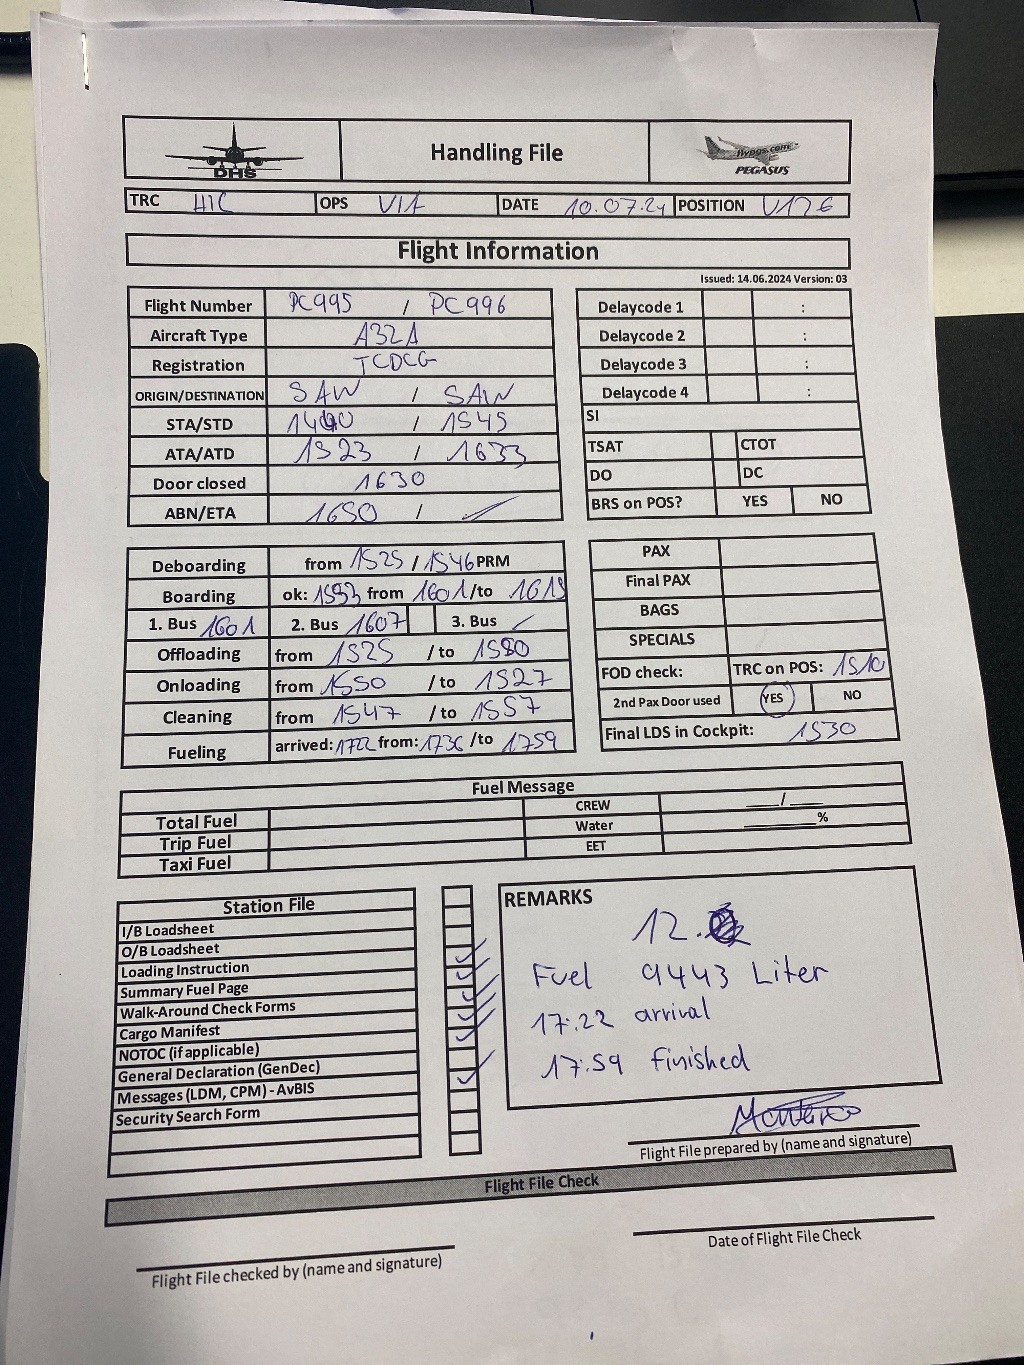 DHS
Handling File
flypgs.com
PEGASUS
TRC HIC OPS VIA DATE 10.07.24 POSITION V126
Flight Information
Issued: 14.06.2024 Version: 03
Flight Number PC995 / PC996
Aircraft Type A32A
Registration TCDCG
ORIGIN/DESTINATION SAW / SAW
STA/STD / 1545
ATA/ATD 1523 / 1633
Door closed 1630
ABN/ETA 1650 /
Delaycode 1 :
Delaycode 2 :
Delaycode 3 :
Delaycode 4 :
SI
TSAT CTOT
DO DC
BRS on POS? YES NO
Deboarding from 1525 / 1546 PRM
Boarding ok: from 1601 /to 1619
1. Bus 1601 2. Bus 1607 3. Bus
Offloading from 1525 / to
Onloading from 1550 / to 1527
Cleaning from 1547 / to 1557
Fueling arrived: 1722 from: 1736 /to 1759
PAX
Final PAX
BAGS
SPECIALS
FOD check: TRC on POS: 1510
2nd Pax Door used YES NO
Final LDS in Cockpit: 1530
Fuel Message
Total Fuel CREW __/__
Trip Fuel Water ______%
Taxi Fuel EET
Station File
I/B Loadsheet
O/B Loadsheet
Loading Instruction
Summary Fuel Page
Walk-Around Check Forms
Cargo Manifest
NOTOC (if applicable)
General Declaration (GenDec)
Messages (LDM, CPM) - AvBIS
Security Search Form
REMARKS
12.
Fuel 9443 Liter
17:22 arrival
17:59 finished
Flight File prepared by (name and signature)
Flight File Check
Flight File checked by (name and signature)
Date of Flight File Check